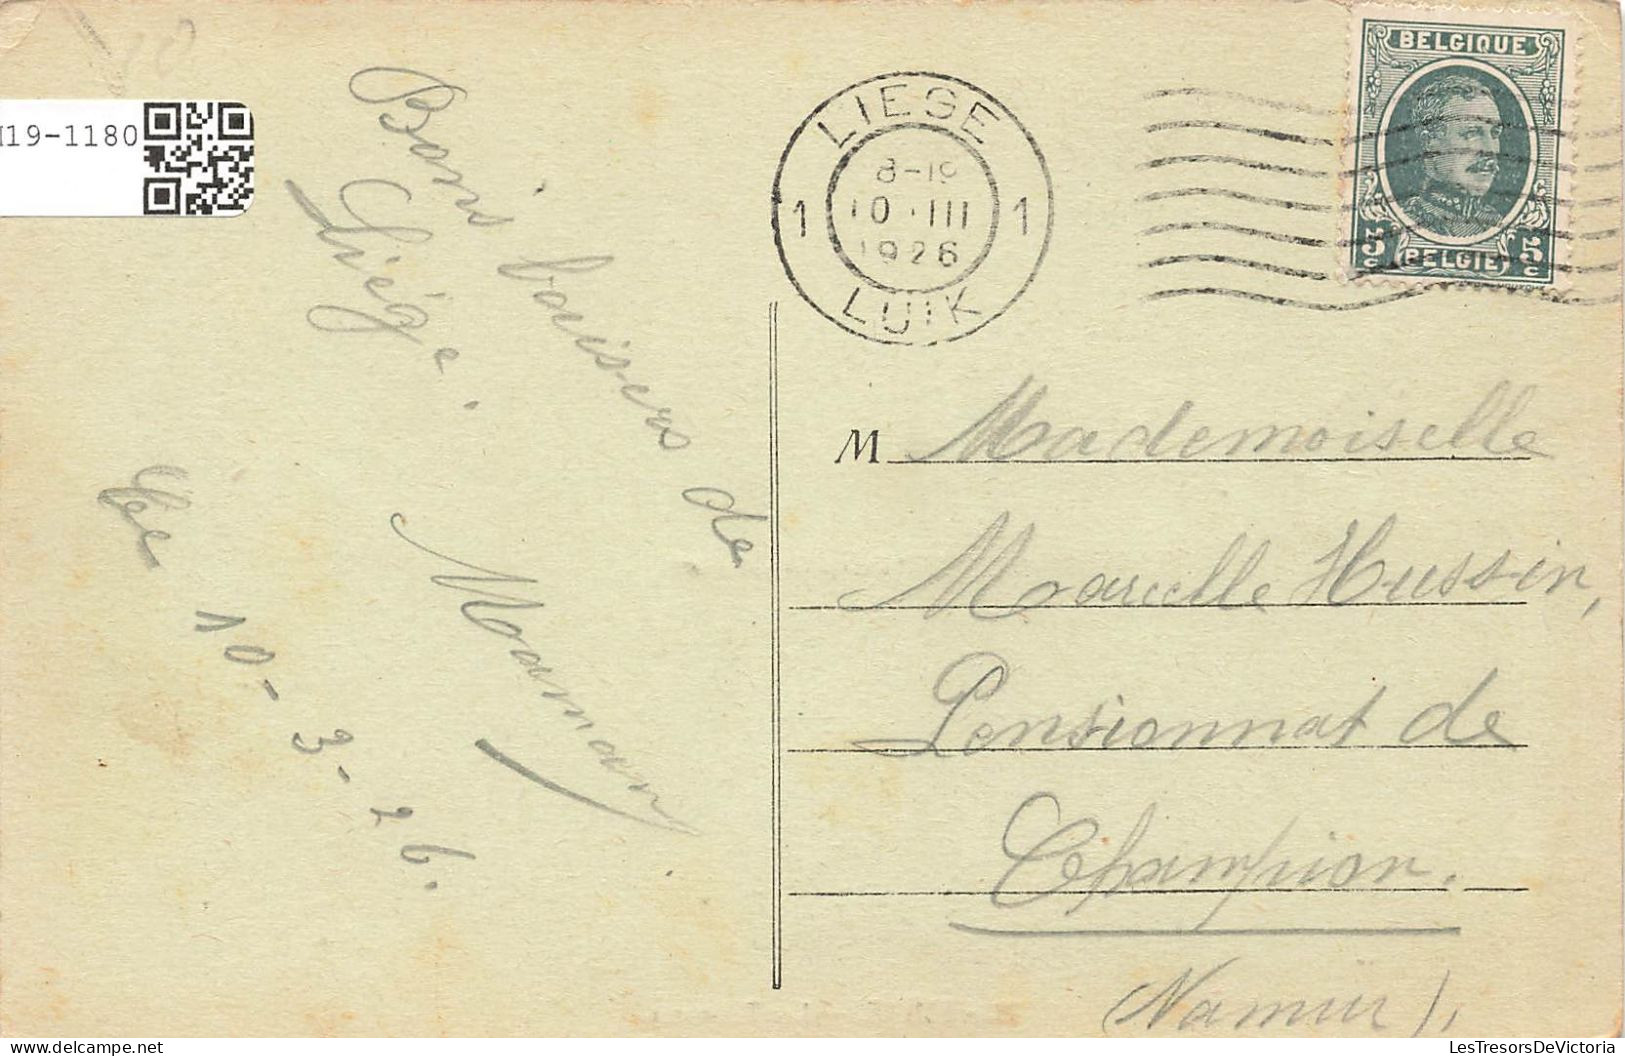 I19-1180
Bons baisers de
Liége.
Maman
Le 10-3-26.
LIEGE
8-19
10 III
1926
1 1
LUIK
BELGIQUE
5 c 5 c
(BELGIE)
M Mademoiselle
Marcelle Hussin,
Pensionnat de
Champion.
(Namur),
LesTresorsDeVictoria